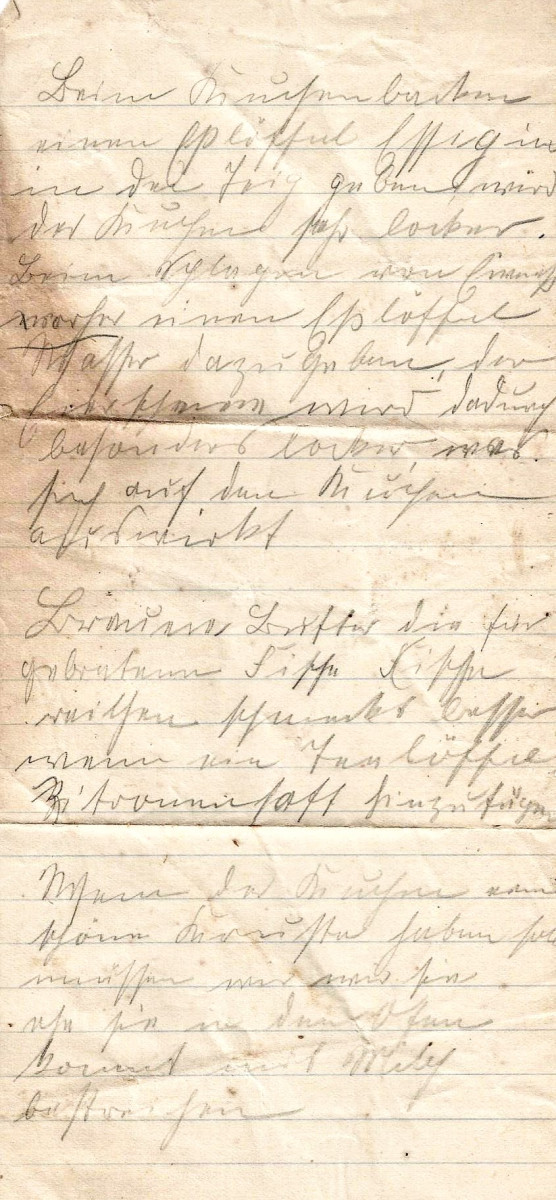 Beim Kuchenbacken
einen Eßlöffel Essig
in den Teig geben, wird
der Kuchen sehr locker.
Beim Schlagen von Eiweiß
vorher einen Eßlöffel
Wasser dazugeben, der
wird dadurch
besonders locker, was
sich auf den Kuchen
auswirkt
Braune Butter die für
gebratene Fische
reichen schmeckt besser
wenn ein Teelöffel
Zitronensaft hinzufügen
Wenn der Kuchen eine
schöne Kruste haben soll
müssen wir sie
ehe sie in den Ofen
kommt mit Milch
bestreichen